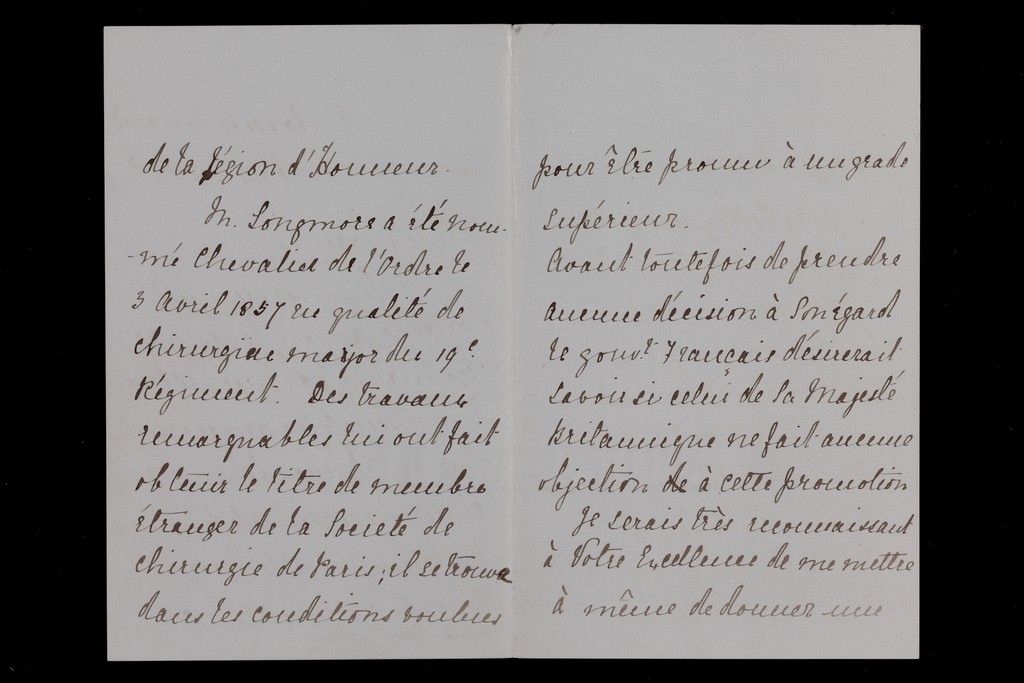 de la Légion d'Honneur.
M. Longmore a été nom-
-mé Chevalier de l'Ordre le
3 Avril 1857 en qualité de
Chirurgien major du 19e
Régiment. Des travaux
remarquables lui ont fait
obtenir le titre de membre
étranger de la Societé de
chirurgie de Paris; il se trouve
dans les conditions voulues
pour être promu à un grade
supérieur.
Avant toutefois de prendre
aucune décision à Son égard
le gouvt. Français désirerait
savoir si celui de Sa Majesté
Britannique ne fait aucune
objection de à cette promotion
Je serais très reconnaissant
à Votre Excellence de me mettre
à même de donner une